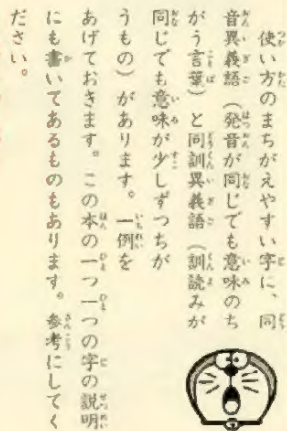 使い方のまちがえやすい字に、同
音異義語（発音が同じでも意味のち
がう言葉）と同訓異義語（訓読みが
同じでも意味が少しずつちが
うもの）があります。一例を
あげておきます。この本の一つ一つの字の説明
にも書いてあるものもあります。参考にしてく
ださい。